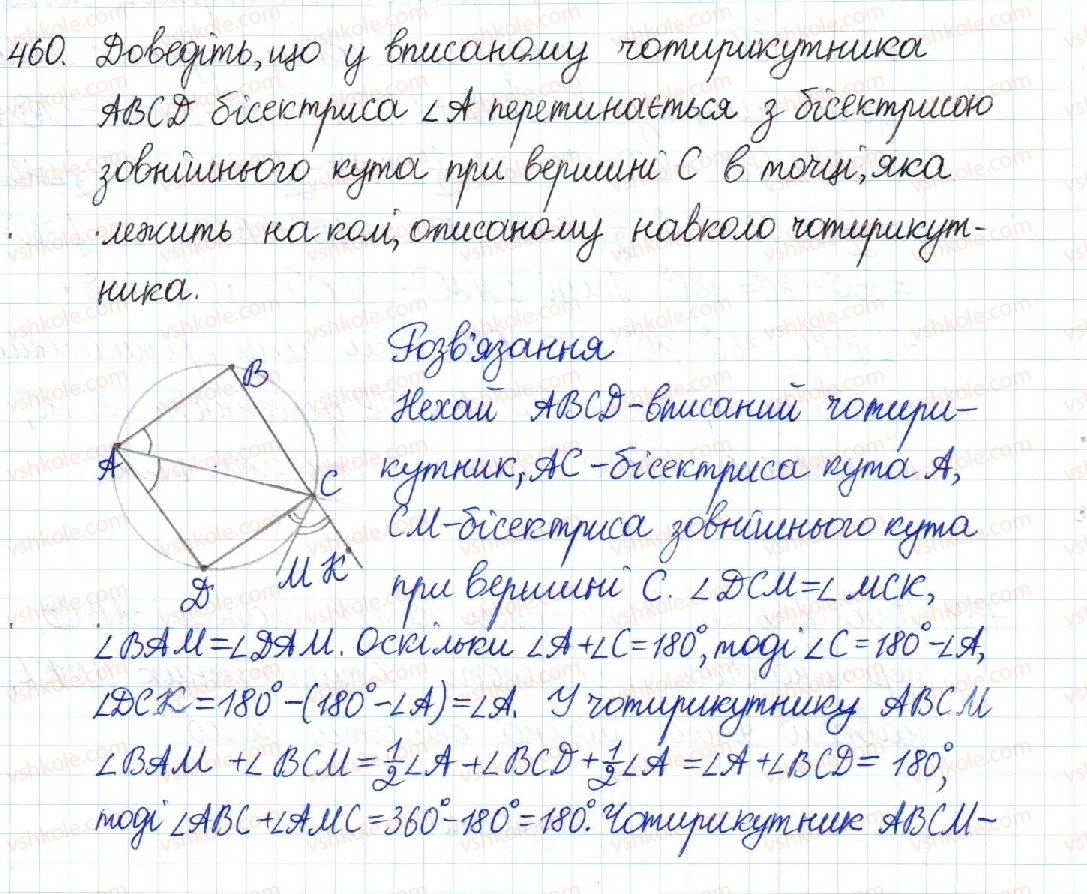 460. Доведіть, що у вписаному чотирикутника
ABCD бісектриса ∠A перетинається з бісектрисою
зовнішнього кута при вершині C в точці, яка
лежить на колі, описаному навколо чотирикут-
ника.
Розв'язання
Нехай ABCD - вписаний чотири-
кутник, AC - бісектриса кута A,
CM - бісектриса зовнішнього кута
при вершині C. ∠DCM = ∠MCK,
∠BAM = ∠DAM. Оскільки ∠A + ∠C = 180°, тоді ∠C = 180° - ∠A,
∠DCK = 180° - (180° - ∠A) = ∠A. У чотирикутнику ABCM
∠BAM + ∠BCM = 1/2 ∠A + ∠BCD + 1/2 ∠A = ∠A + ∠BCD = 180°,
тоді ∠ABC + ∠AMC = 360° - 180° = 180°. Чотирикутник ABCM -
B
A
C
M K
D
vshkole.com